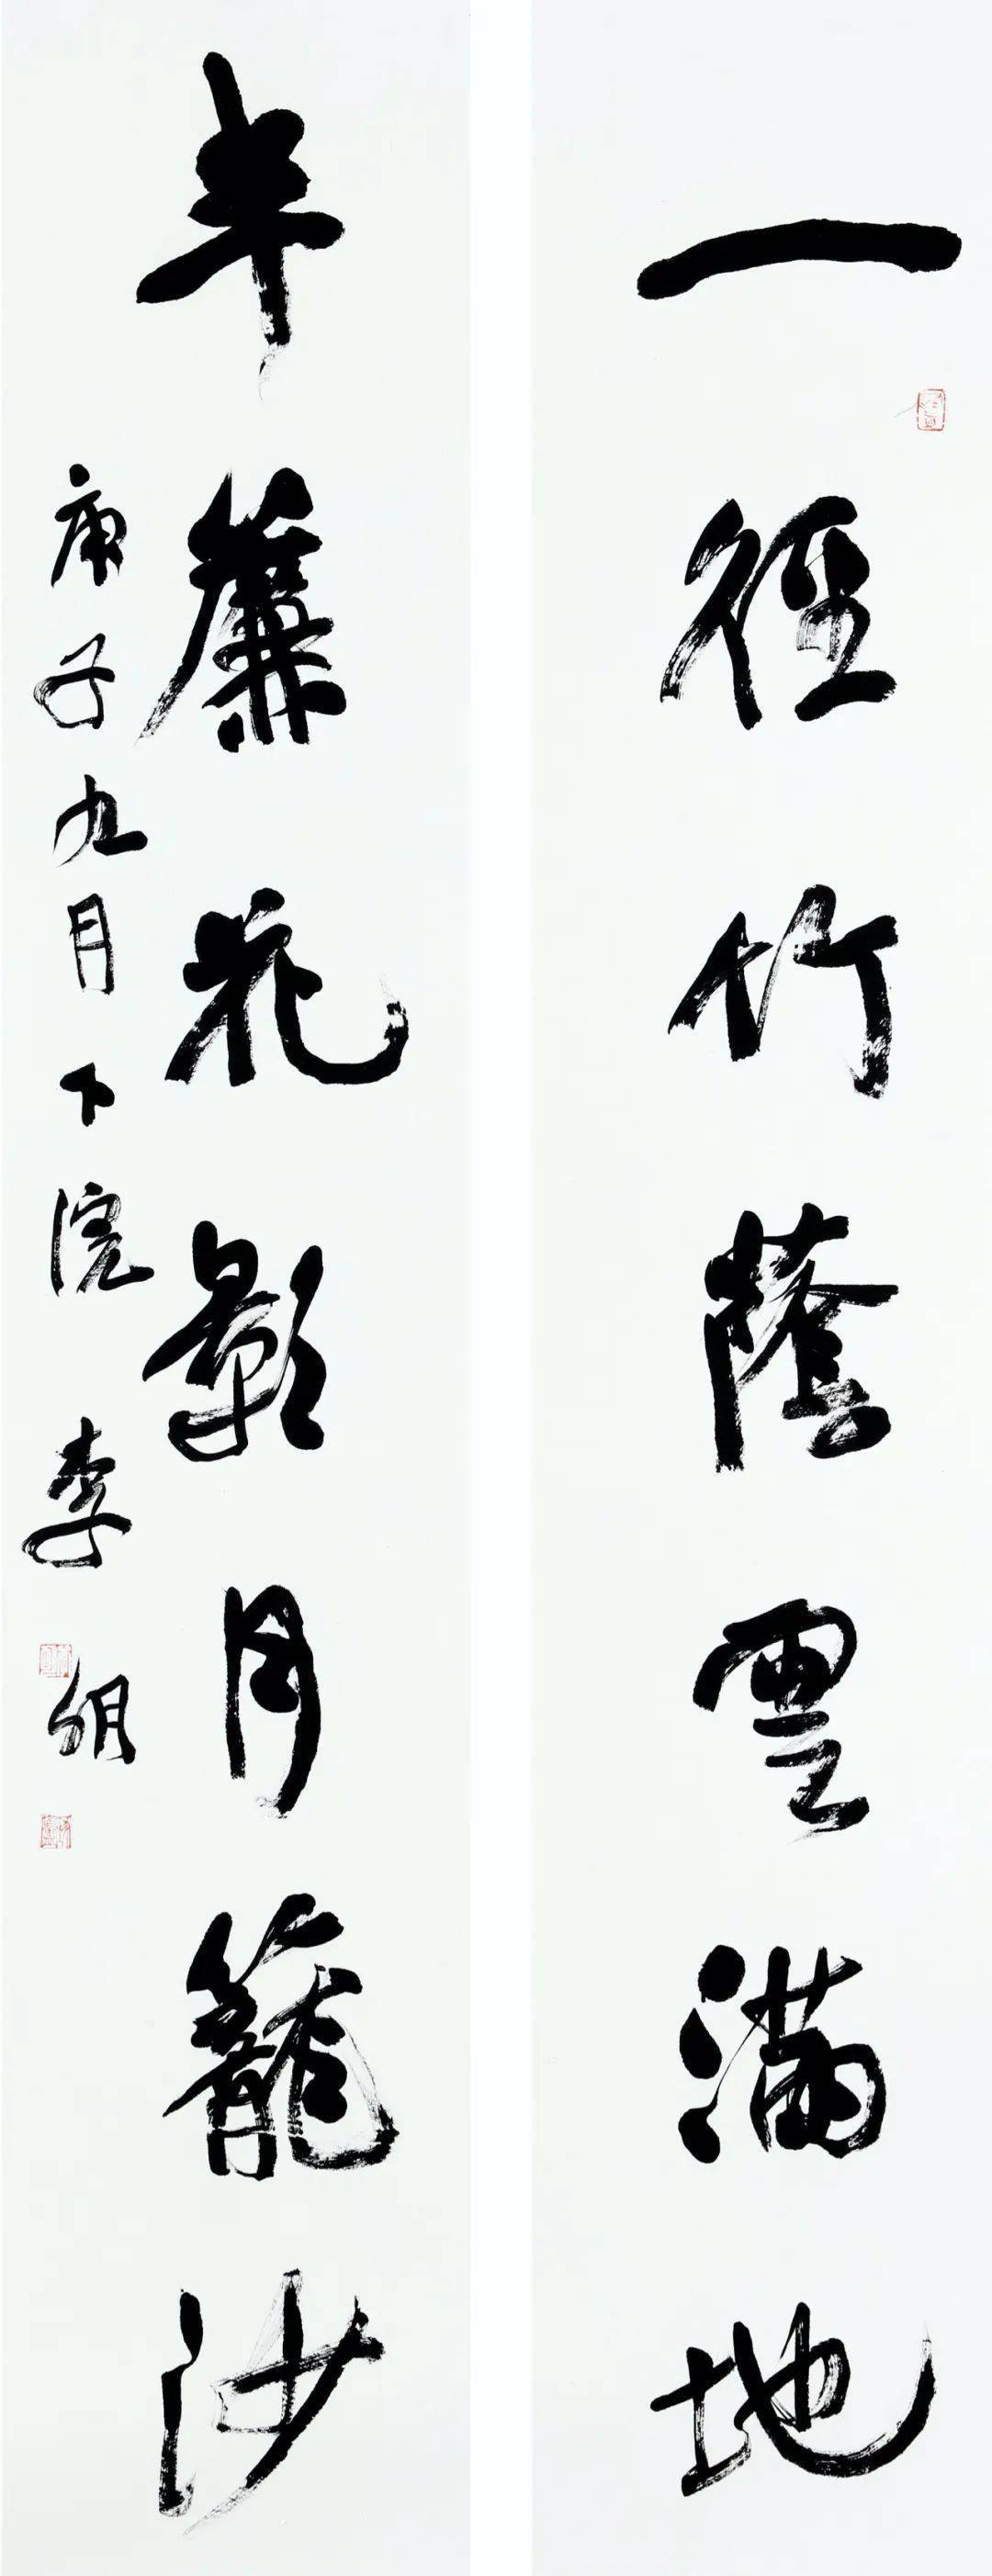 一徑竹蔭雲滿地
半簾花影月籠沙
庚子九月下浣 李明